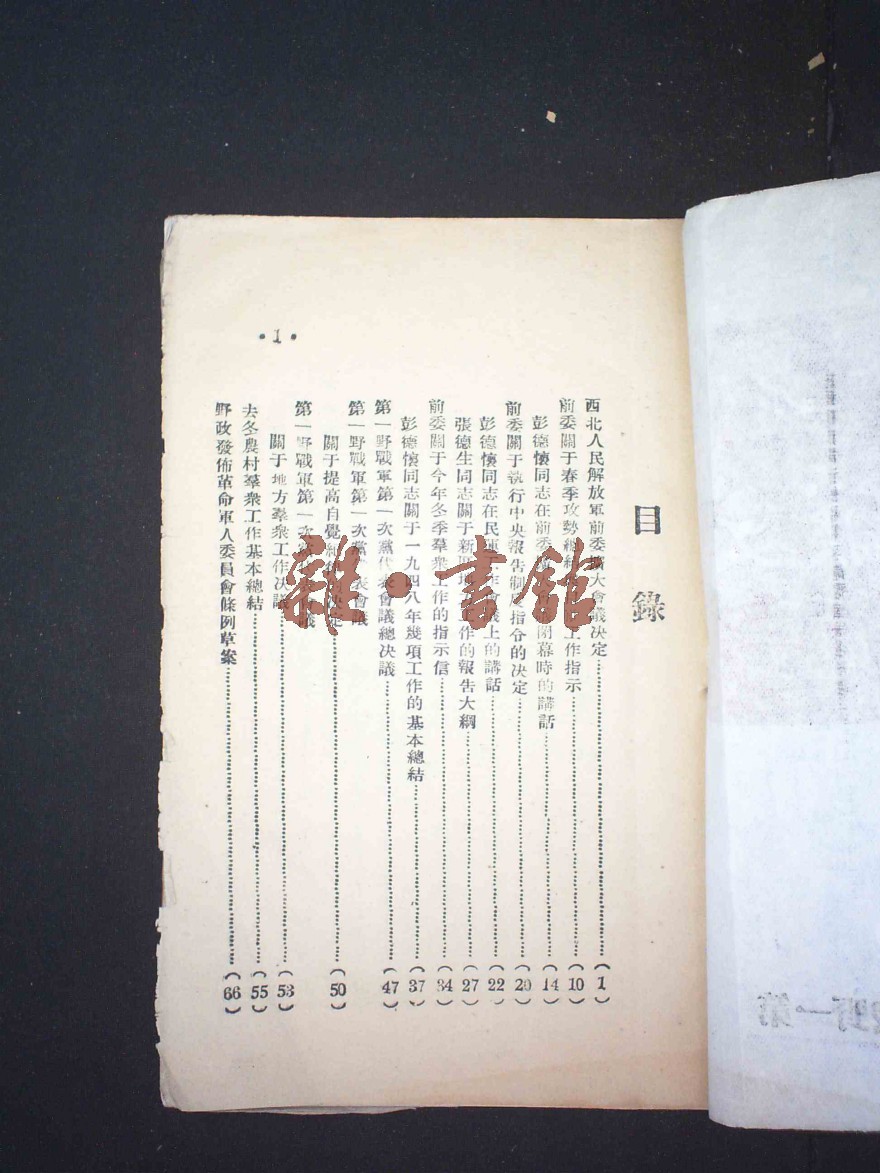 目錄
西北人民解放軍前委擴大會議决定……(1)
前委關于春季攻勢總結 工作指示……(10)
彭德懷同志在前委 閉幕時的講話……(14)
前委關于執行中央報告制度指令的决定……(20)
彭德懷同志在民運工作會議上的講話……(22)
張德生同志關于新 地 工作的報告大綱……(27)
前委關于今年冬季羣衆工作的指示信……(34)
彭德懷同志關于一九四八年幾項工作的基本總結……(37)
第一野戰軍第一次黨代表會議總决議……(47)
第一野戰軍第一次黨代表會議
關于提高自覺紀律的决定……(50)
第一野戰軍第一次黨代表會議
關于地方羣衆工作决議……(53)
去冬農村羣衆工作基本總結……(55)
野政發佈革命軍人委員會條例草案……(66)
·1·
雜·書館
第一野